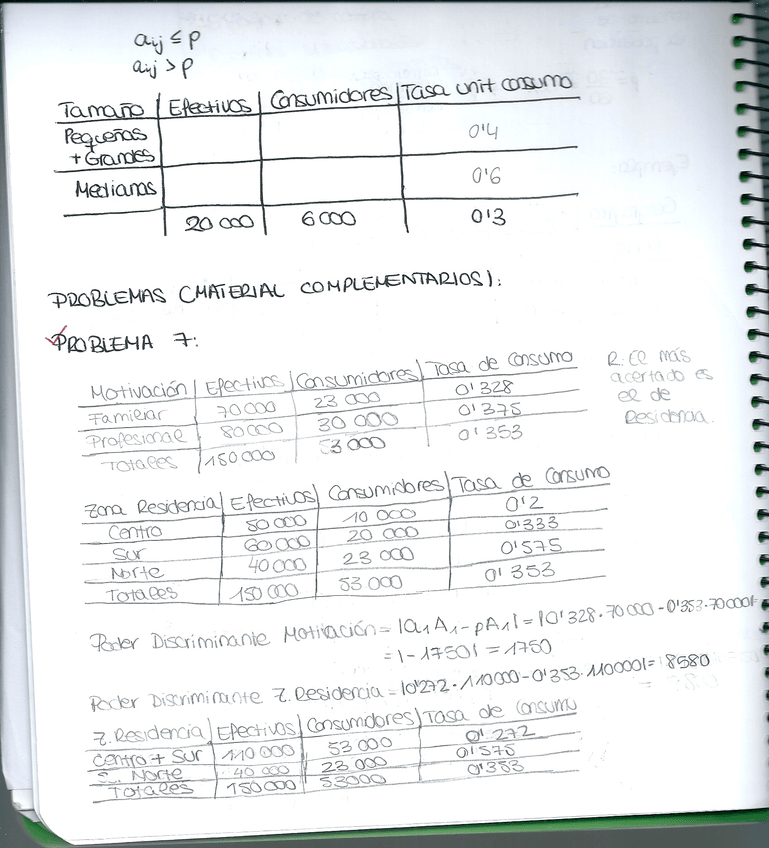 aij ≤ p
aij > p
Tamaño | Efectivos | Consumidores | Tasa unit consumo
Pequeñas + Grandes | | | 0'4
Medianas | | | 0'6
| 20 000 | 6 000 | 0'3
PROBLEMAS (MATERIAL COMPLEMENTARIOS):
PROBLEMA 7:
Motivación | Efectivos | Consumidores | Tasa de Consumo
Familiar | 70 000 | 23 000 | 0'328
Profesional | 80 000 | 30 000 | 0'375
Totales | 150 000 | 53 000 | 0'353
R: El más
acertado es
el de
Residencia.
Zona Residencia | Efectivos | Consumidores | Tasa de Consumo
Centro | 50 000 | 10 000 | 0'2
Sur | 60 000 | 20 000 | 0'333
Norte | 40 000 | 23 000 | 0'575
Totales | 150 000 | 53 000 | 0'353
Poder Discriminante Motivación = |a1A1 - pA1| = |0'328·70 000 - 0'353·70000| =
= |-1750| = 1750
Poder Discriminante Z. Residencia = |0'272·110000 - 0'353·110000| = 8580
Z. Residencia | Efectivos | Consumidores | Tasa de Consumo
Centro + Sur | 110 000 | 53 000 | 0'272
Norte | 40 000 | 23 000 | 0'575
Totales | 150 000 | 53000 | 0'353